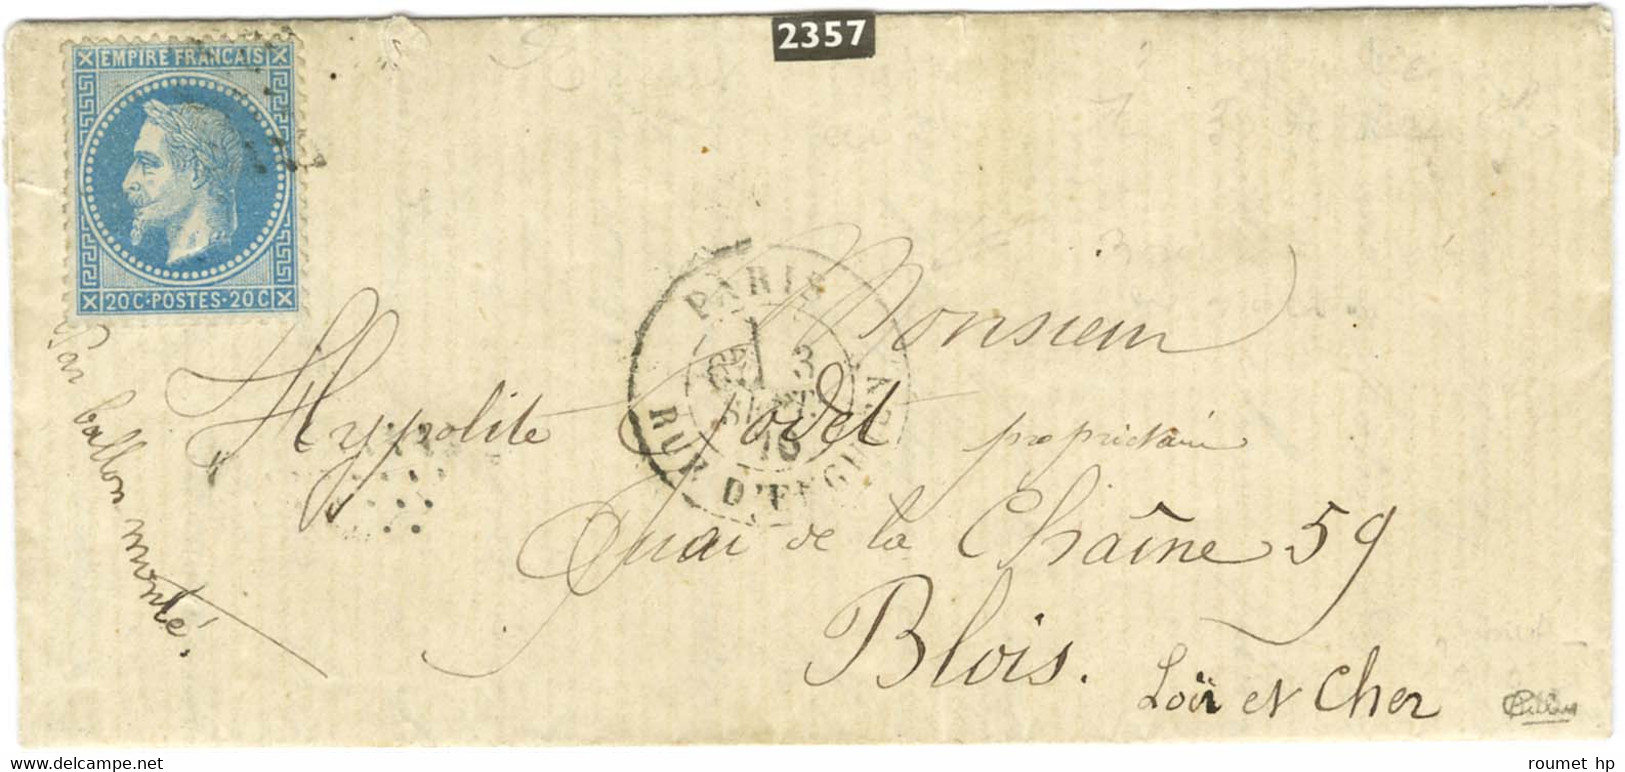 2357
EMPIRE FRANÇAIS
20C·POSTES·20C
Par ballon monté.
PARIS
3
SEPT.
RUE D'ENGHIEN
Monsieur
Hyppolite Jodet propriétaire
Quai de la Chaîne 59
Blois.
Loir et Cher
roumet hp